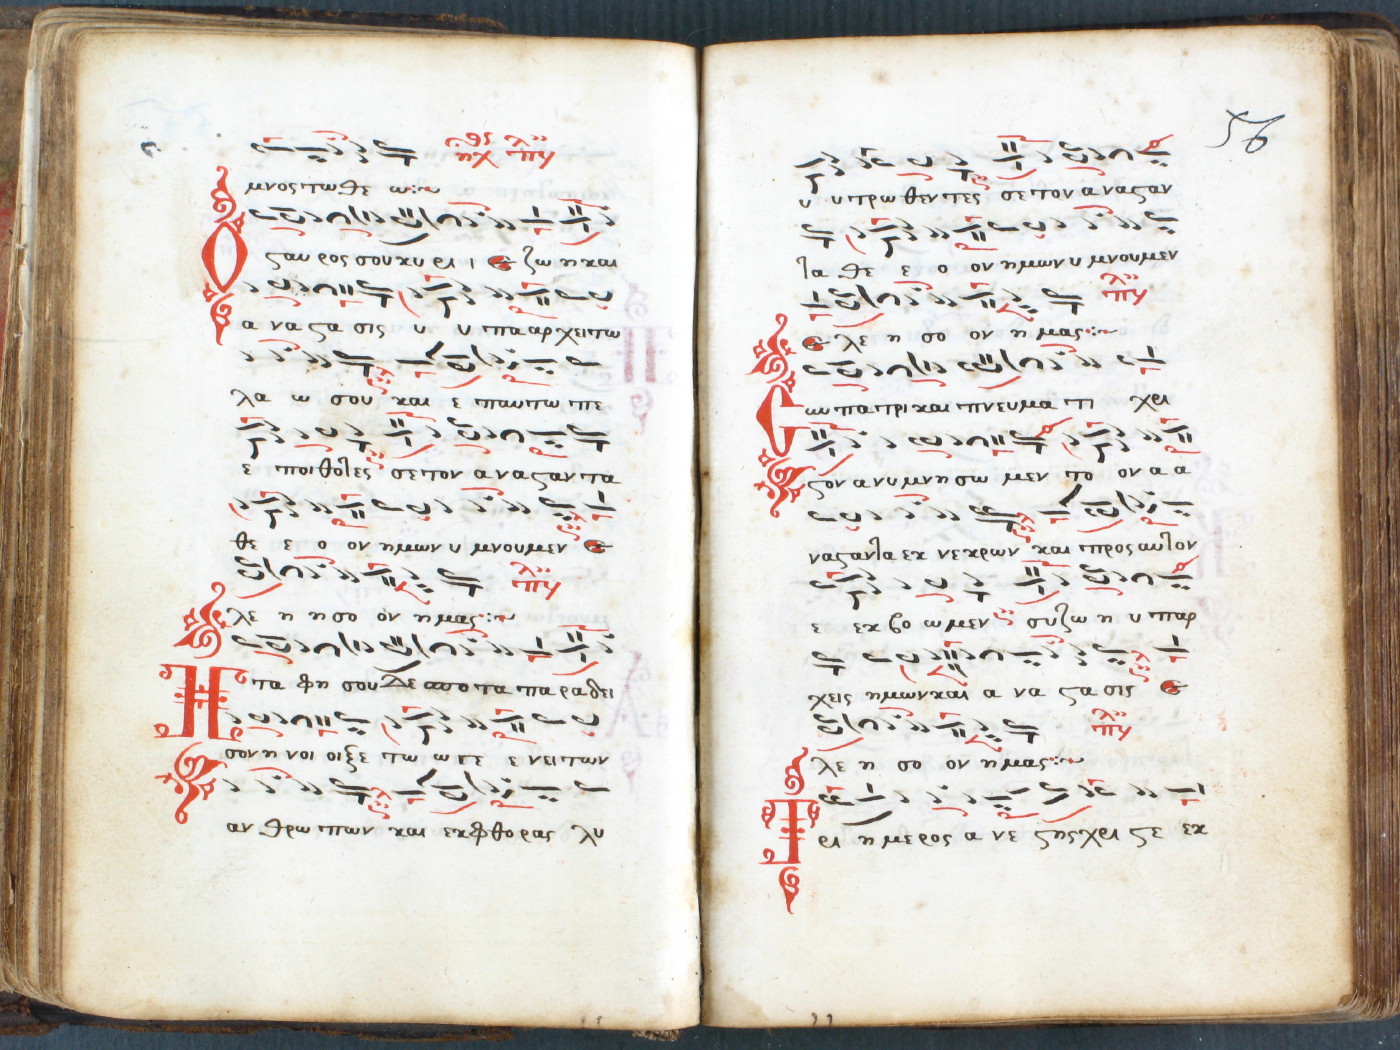 μνος τω θε ω
Ο ςαυ ρος σου κυ ρι ι ε ζω η και
α να ςα σις υ υ πα αρ χει τω
λα ω σου και ε π αυ τω πε
ε ποι θοτες σε τον α να ςαν τα
θε ε ο ον η μων υ μνου μεν ε
λε η η σο ον η μας
Η τα φη σου δε σπο τα πα ρα δει
σον η νοι οι ξε τω ω γε ε νει των
αν θρω πων και εκ φθο ρας λυ
56
υ υ τρω θεν τες σε τον α να ςαν
τα θε ε ο ον η μων υ μνου μεν
ε λε η σο ον η μας
C ων πα τρι και πνευ μα τι χρι
ςον α νυ μνη σω μεν το ον α α
να ςαντα εκ νε κρων και προς αυτον
ε εκ βο ω μεν συ ζω η υ παρ
χεις η μων και α να ςα σις ε
λε η σο ον η μας
Τ ρι η με ρος α νε ςης χρι ςε εκ